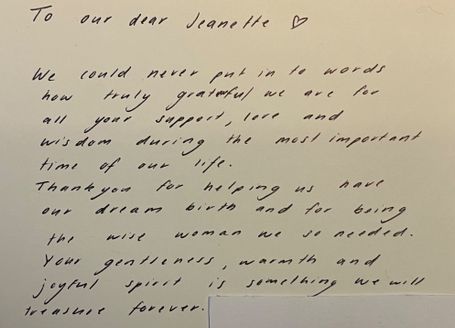 To our dear Jeanette ♡
We could never put in to words
how truly grateful we are for
all your support, love and
wisdom during the most important
time of our life.
Thankyou for helping us have
our dream birth and for being
the wise woman we so needed.
Your gentleness, warmth and
joyful spirit is something we will
treasure forever.